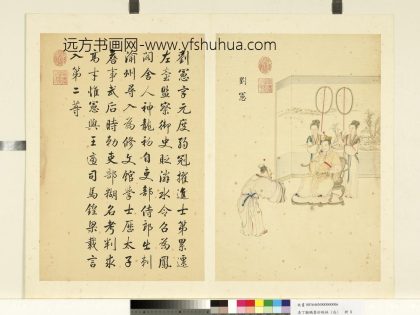 远方书画网- www.yfshuhua.com
劉憲
劉憲字元度弱冠擢進士第累遷
左臺監察御史貶溧水令召為鳳
閣舍人神龍初自吏部侍郎出刺
渝州尋入為修文館學士歷太子
詹事武后時勅吏部糊名考判求
高才惟憲與王適司馬鍠梁載言
入第二等